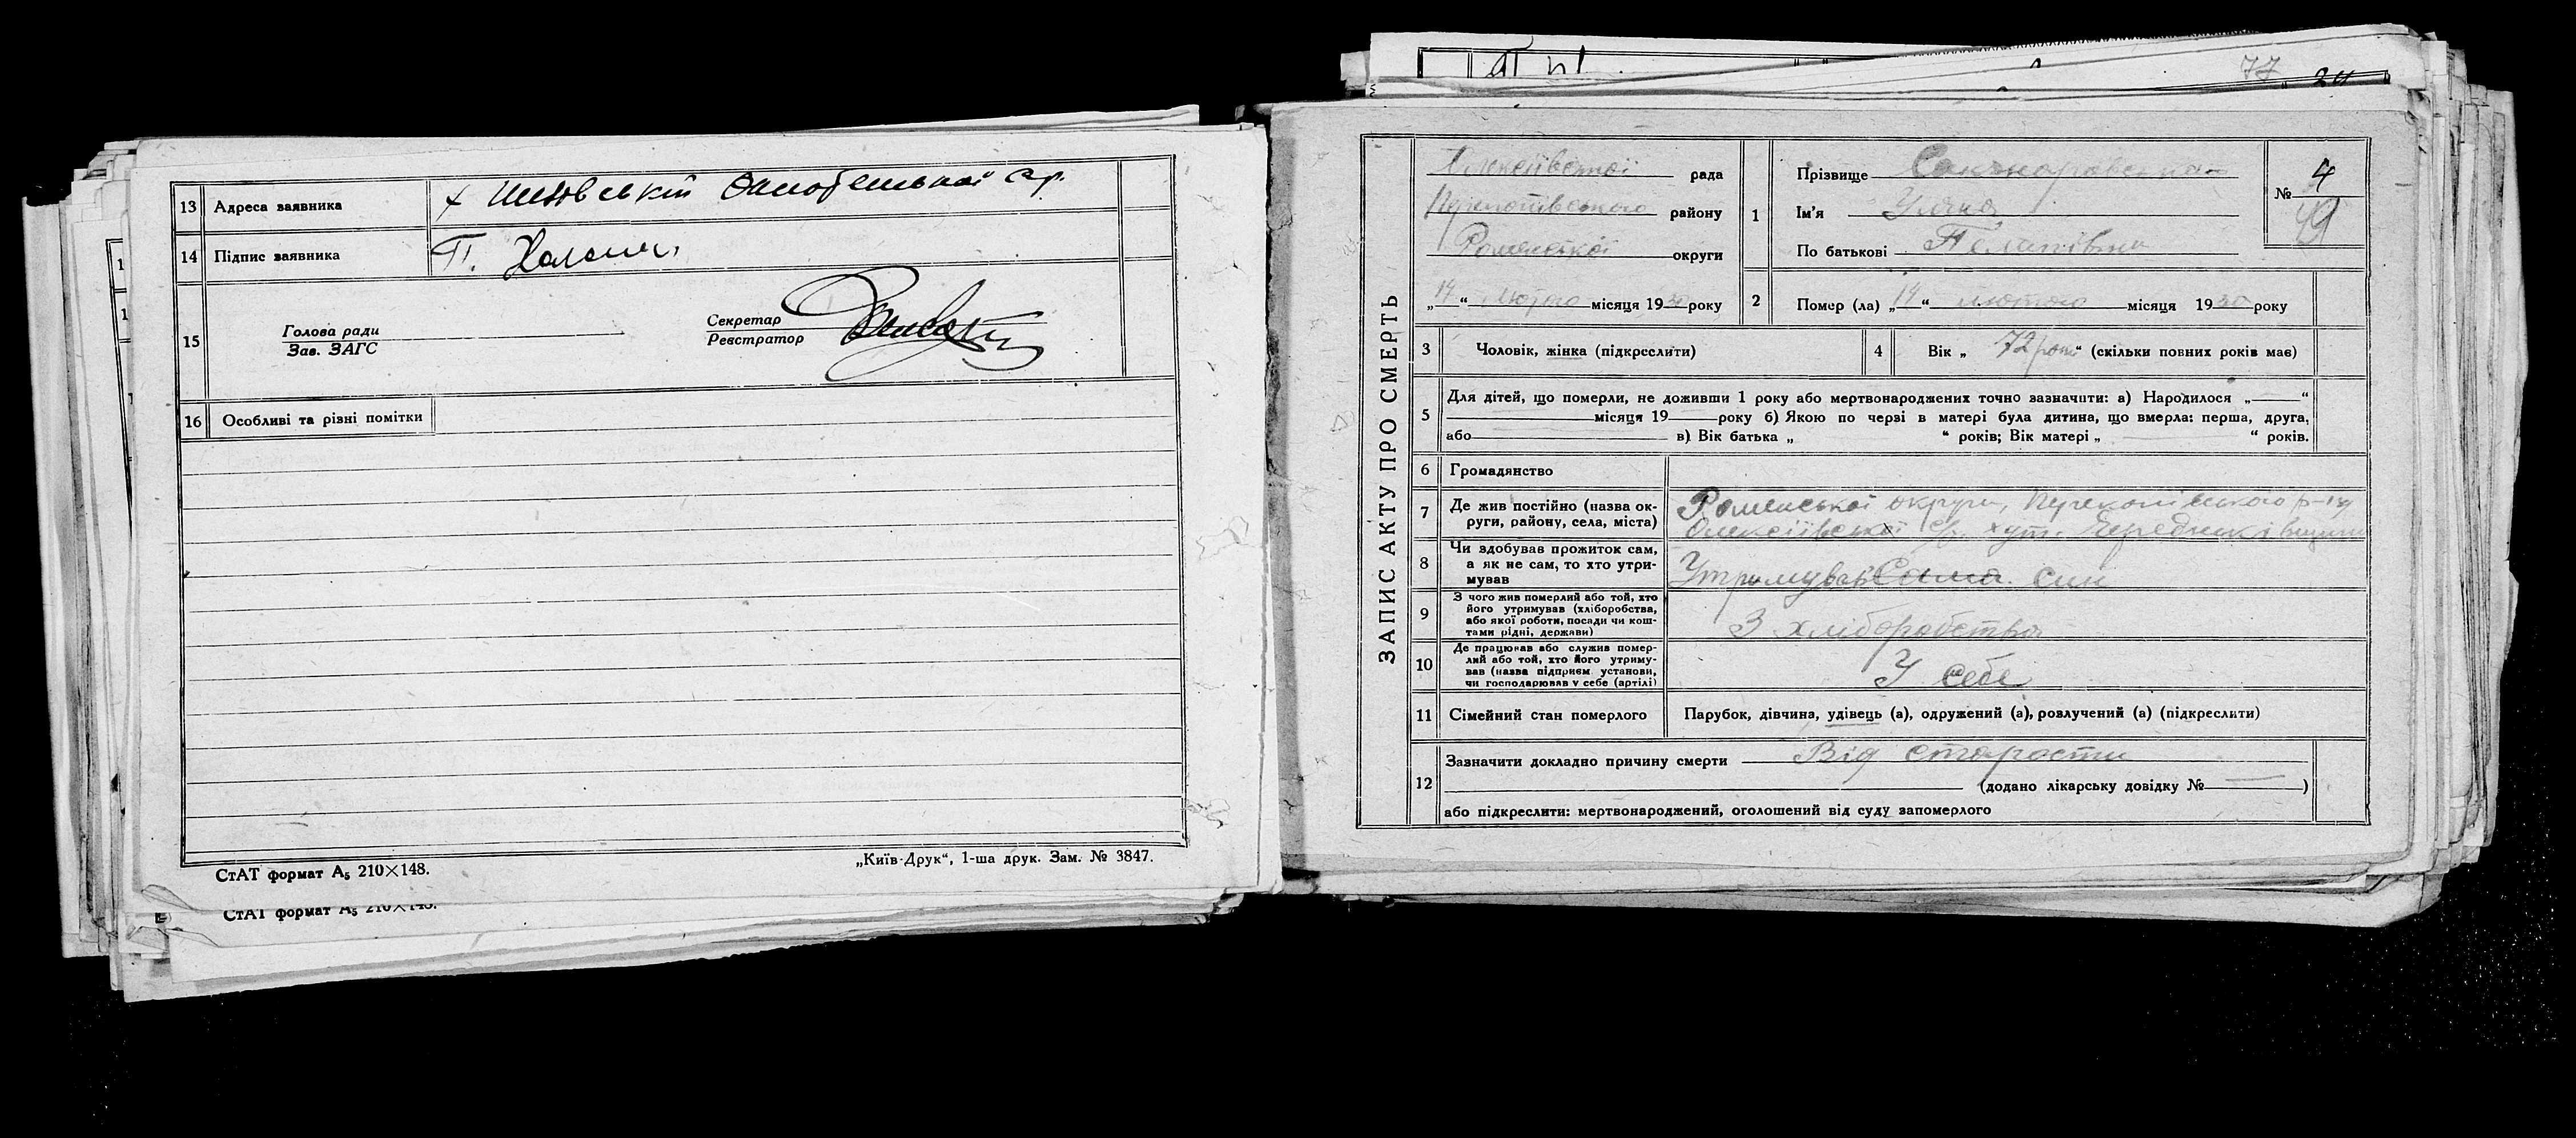 13 Адреса заявника х
14 Підпис заявника П.
15 Голова ради
Зав. ЗАГС
Секретар
Реєстратор
16 Особливі та різні помітки
СтАТ формат А₅ 210×148.
„Київ-Друк“, 1-ша друк. Зам. № 3847.
СтАТ формат А₅ 210×148.
77
ЗАПИС АКТУ ПРО СМЕРТЬ
рада
району
Роменської округи
„14“ лютого місяця 1930 року
1 Прізвище
Ім'я Уляна
По батькові
№ 4
49
2 Помер (ла) „14“ лютого місяця 1930 року
3 Чоловік, жінка (підкреслити)
4 Вік „72 роки“ (скільки повних років має)
5 Для дітей, що померли, не доживши 1 року або мертвонароджених точно зазначити: а) Народилося „—“
місяця 19— року б) Якою по черзі в матері була дитина, що вмерла: перша, друга,
або— в) Вік батька „ “ років; Вік матері „ “ років.
6 Громадянство
7 Де жив постійно (назва ок-
руги, району, села, міста)
Роменської округи, Перекопівського р-ну
Олексіївської с/р. хут.
8 Чи здобував прожиток сам,
а як не сам, то хто утри-
мував
Утримував Сама. син
9 З чого жив померлий або той, хто
його утримував (хліборобства,
або якої роботи, посади чи кош-
тами рідні, держави)
З хліборобства
10 Де працював або служив помер-
лий або той, хто його утриму-
вав (назва підприєм установи,
чи господарював у себе (артілі)
У себе
11 Сімейний стан померлого Парубок, дівчина, удівець (а), одружений (а), розлучений (а) (підкреслити)
12 Зазначити докладно причину смерти Від старости
(додано лікарську довідку №—)
або підкреслити: мертвонароджений, оголошений від суду запомерлого